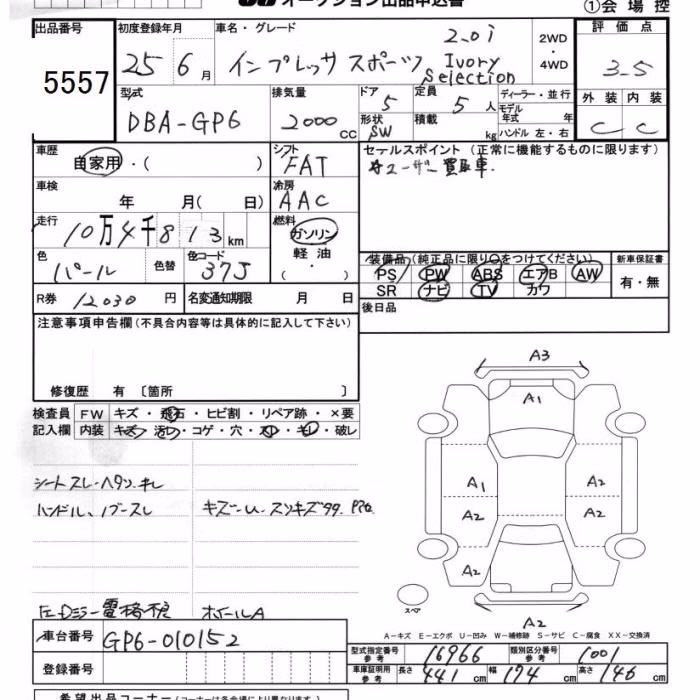 オークション出品申込書
①会場控
出品番号
5557
初度登録年月
25 6月
車名・グレード
インプレッサスポーツ
2.0i
Ivory
Selection
2WD
・
4WD
評価点
3.5
外装 内装
C C
型式
DBA-GP6
排気量
2000 CC
ドア
5
形状
SW
定員
5人
積載
kg
ディーラー・並行
モデル
年式 年
ハンドル 左・右
車歴
自家用・( )
シフト
FAT
車検
年 月( 日)
冷房
AAC
走行
10万4千813km
燃料
ガソリン
軽油
・
( )
色
パール
色替
色コード
37J
R券 12030円
名変通知期限 月 日
セールスポイント(正常に機能するものに限ります)
買取車.
装備品(純正品に限り○をつけてください)
PS PW ABS エアB AW
SR ナビ TV カワ
新車保証書
有・無
後日品
注意事項申告欄(不具合内容等は具体的に記入して下さい)
修復歴 有〔箇所 〕
検査員
記入欄
FW キズ・飛石・ヒビ割・リペア跡・×要
内装 キズ・汚レ・コゲ・穴・スレ・キレ・破レ
シートスレ・ヘタリ・キレ
ハンドル、ノブスレ
キズ・U・スリキズ
電格不良
ホイールA
A3
A1
A1
A2
A2
A2
A2
A2
スペア
A-キズ E-エクボ U-凹み W-補修跡 S-サビ C-腐食 XX-交換済
車台番号
GP6-010152
登録番号
型式指定番号
参考
16966
類別区分番号
参考
1001
車庫証明用
参考
長さ 441cm 幅 174cm 高さ 146cm
希望出品コーナー(コーナーは各会場により異なります)